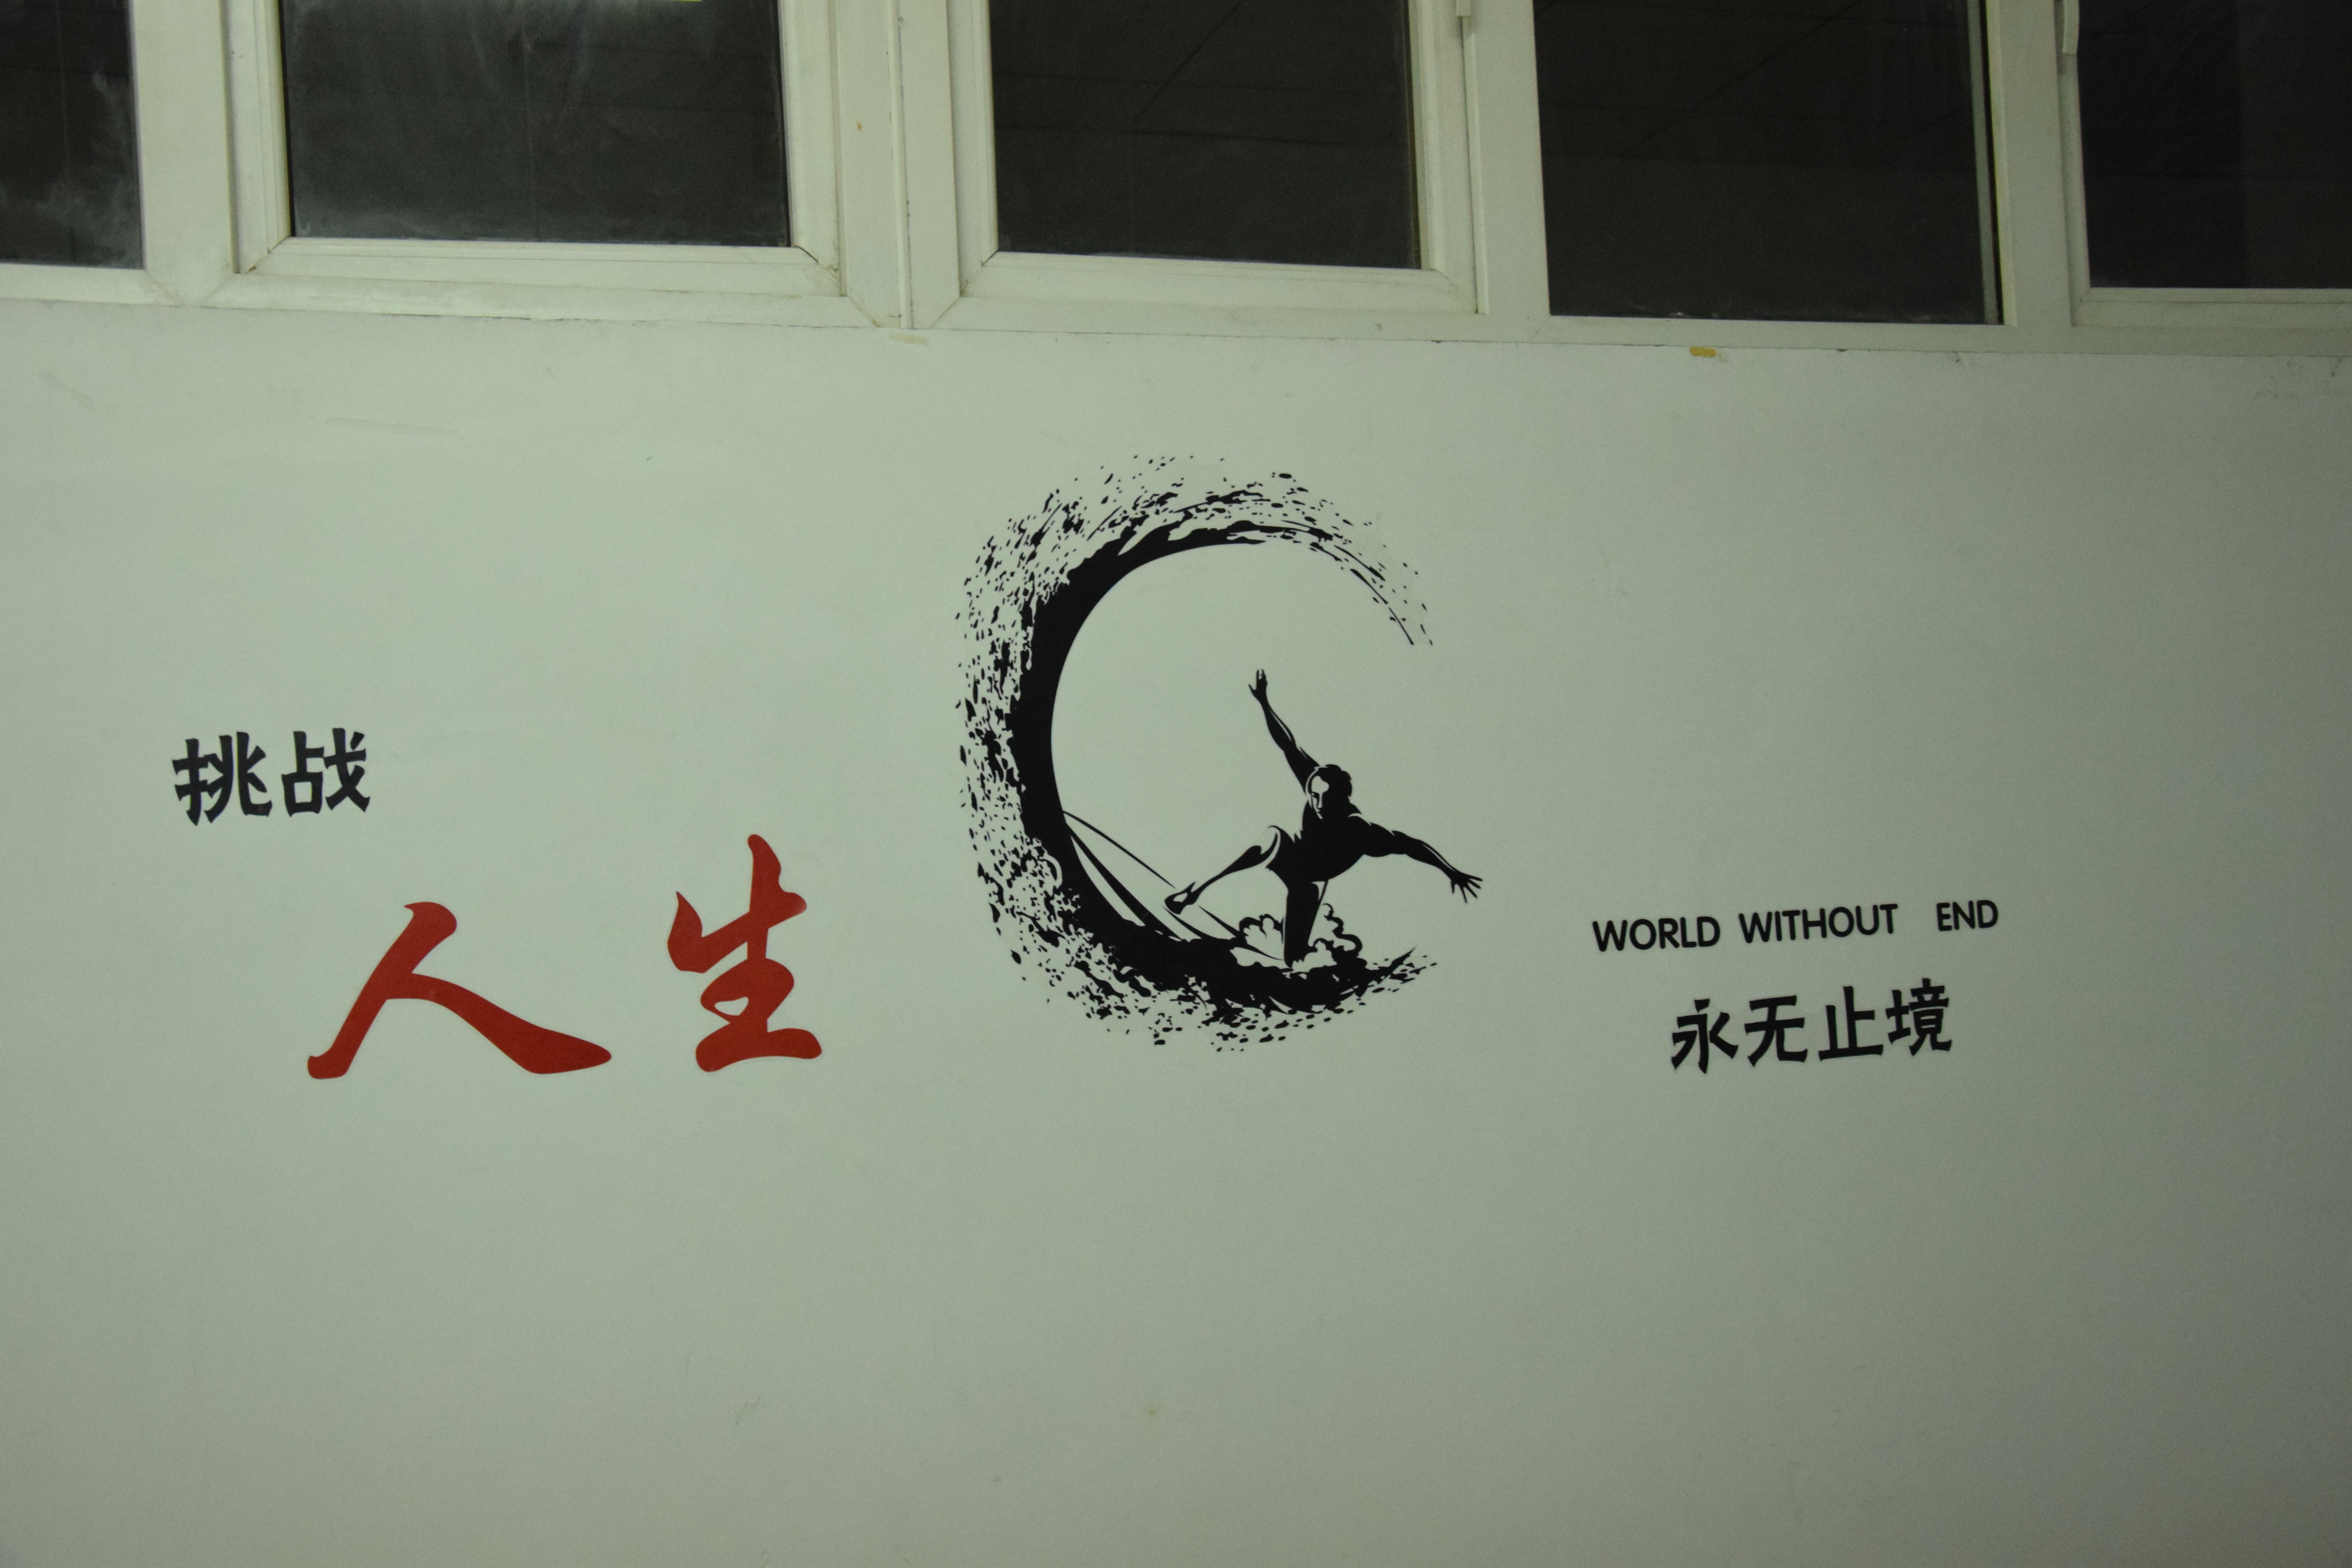 挑战
人生
WORLD WITHOUT END
永无止境